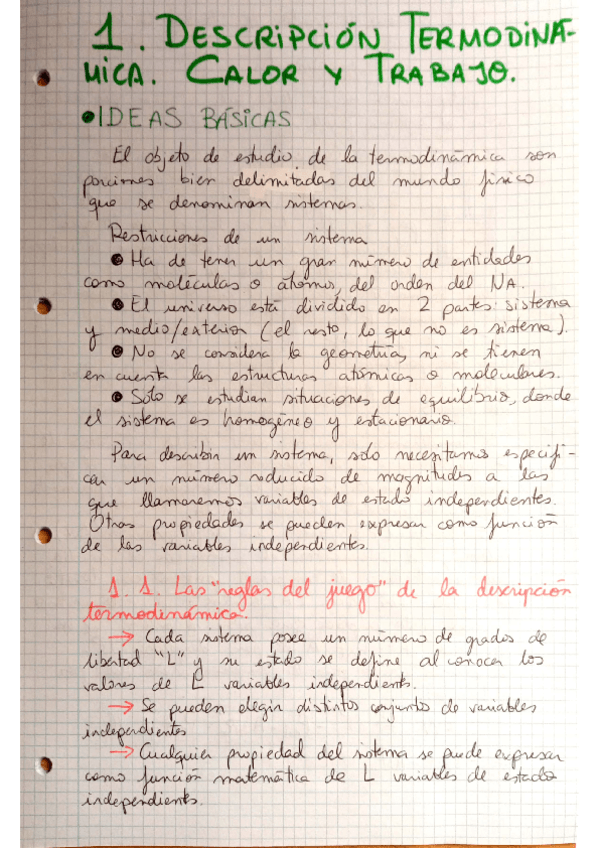 1. DESCRIPCIÓN TERMODINÁ-
MICA. CALOR Y TRABAJO.
• IDEAS BÁSICAS
El objeto de estudio de la termodinámica son
porciones bien delimitadas del mundo físico
que se denominan sistemas.
Restricciones de un sistema
• Ha de tener un gran número de entidades
como moléculas o átomos, del orden del NA.
• El universo está dividido en 2 partes: sistema
y medio/exterior (el resto, lo que no es sistema).
• No se considera la geometría, ni se tienen
en cuenta las estructuras atómicas o moleculares.
• Sólo se estudian situaciones de equilibrio, donde
el sistema es homogéneo y estacionario.
Para describir un sistema, sólo necesitamos especifi-
car un número reducido de magnitudes a las
que llamaremos variables de estado independientes.
Otras propiedades se pueden expresar como función
de las variables independientes.
1. 1. Las "reglas del juego" de la descripción
termodinámica.
→ Cada sistema posee un número de grados de
libertad "L" y su estado se define al conocer los
valores de L variables independients.
→ Se pueden elegir distintos conjunto de variables
independientes
→ Cualquier propiedad del sistema se puede expresar
como función matemática de L variables de estado
independients.